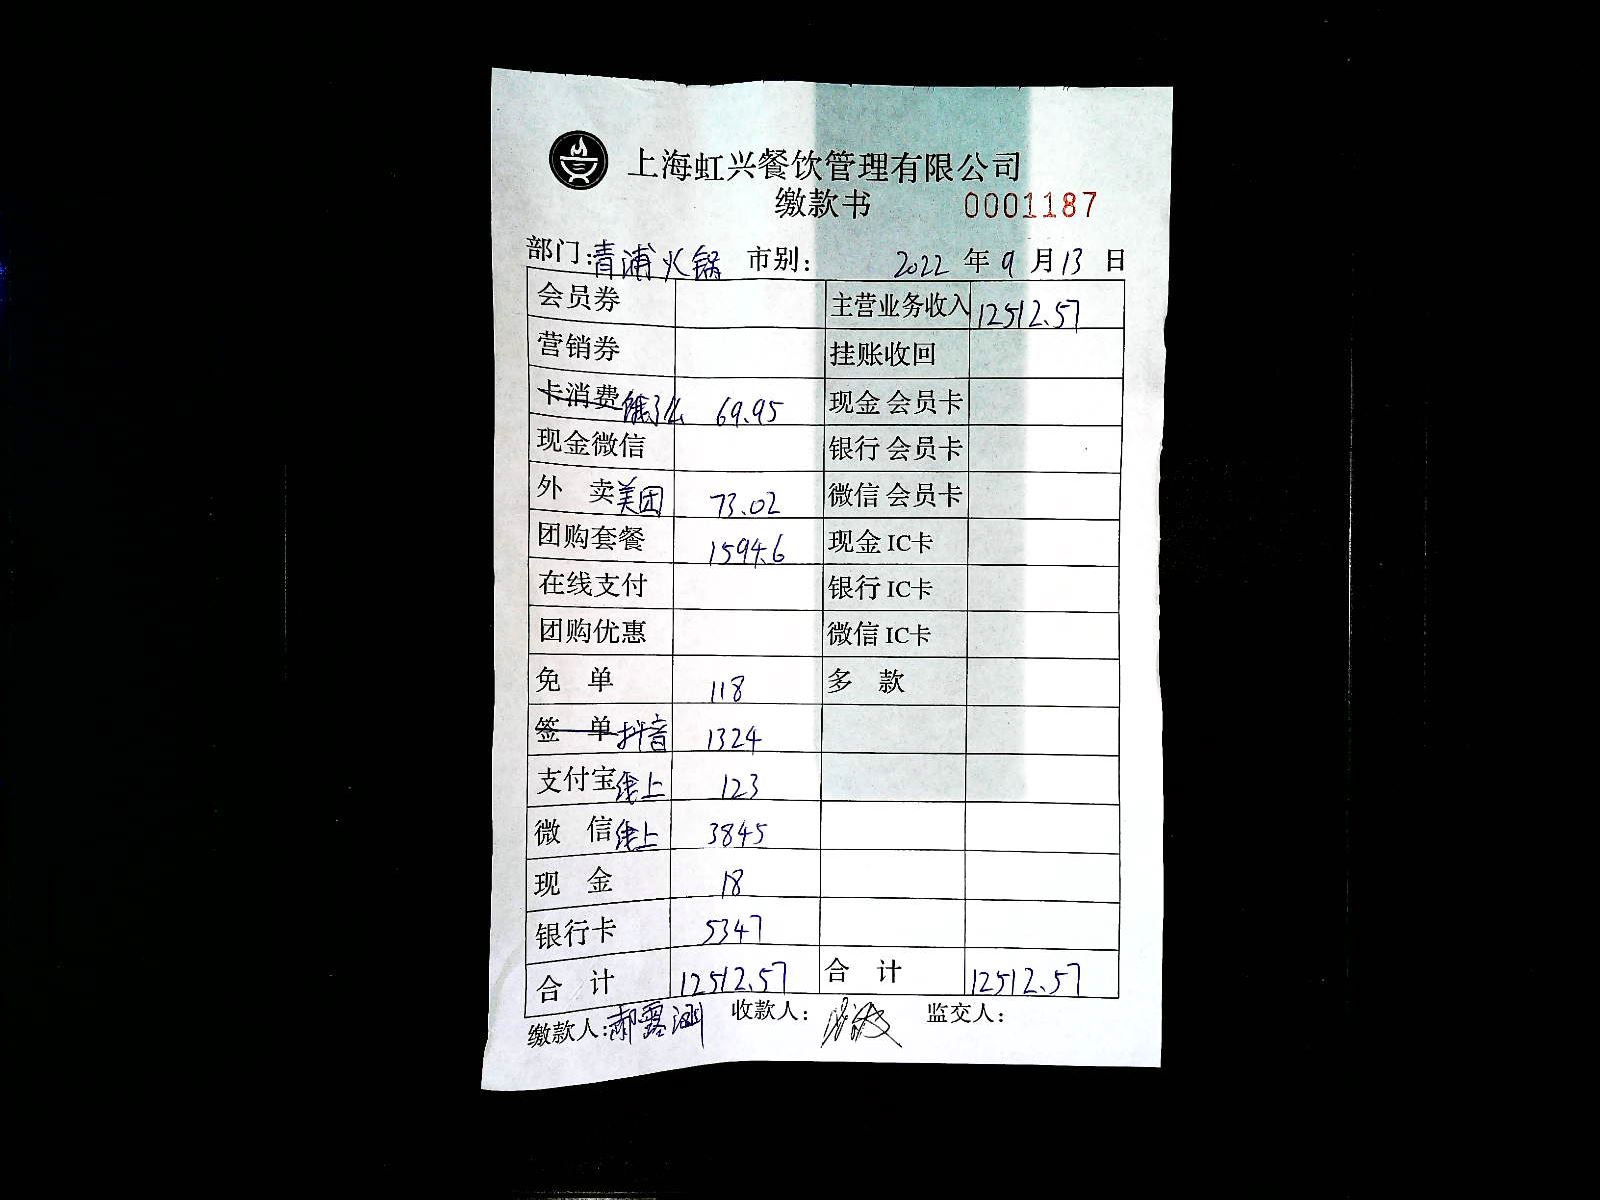 上海虹兴餐饮管理有限公司
缴款书 0001187
部门:青浦火锅 市别: 2022 年 9 月 13 日
会员券 主营业务收入 12512.57
营销券 挂账收回
卡消费 饿了么 69.95 现金 会员卡
现金微信 银行 会员卡
外 卖 美团 73.02 微信 会员卡
团购套餐 1594.6 现金 IC卡
在线支付 银行 IC卡
团购优惠 微信 IC卡
免 单 118 多 款
签 单 抖音 1324
支付宝 线上 123
微 信 线上 3845
现 金 18
银行卡 5347
合 计 12512.57 合 计 12512.57
缴款人:郝露涵 收款人: 监交人: